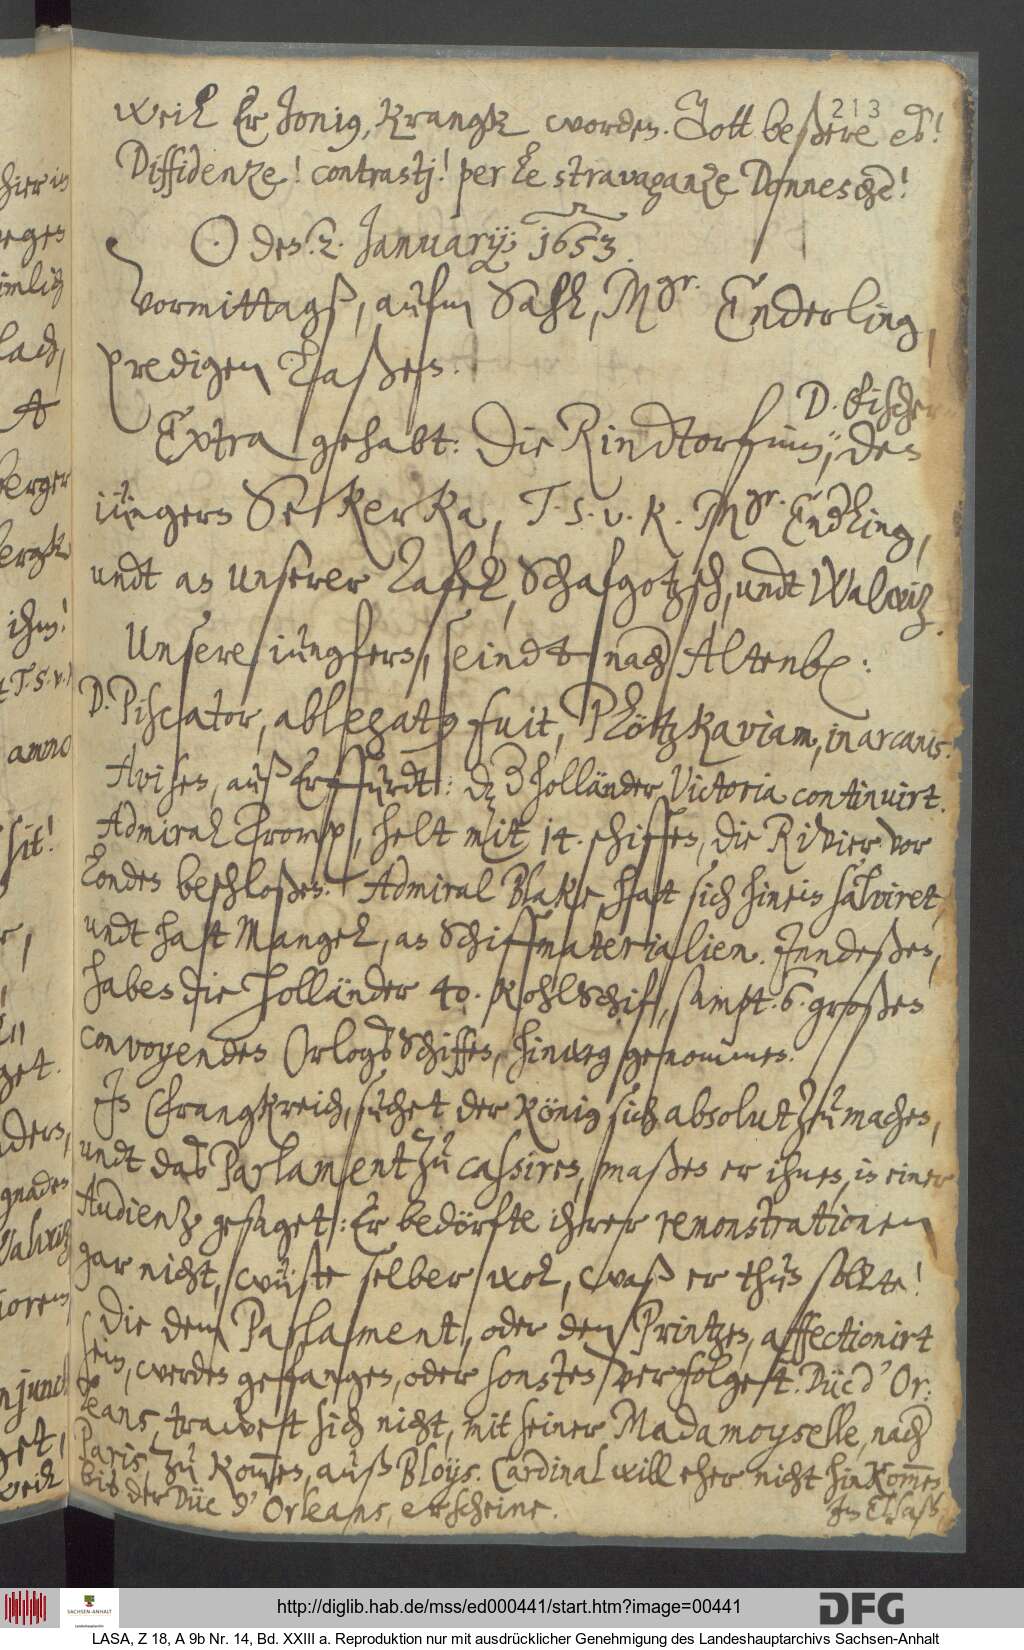 213
weil Er Jonius, kranckh worden. Gott beßere es!
Diffidenze! contrastj! per le stravaganze Donnesche!
☉ den: 2. January; 1653.
Vormittagß, aufm Sahl, Msr. Enderling,
predigen laßen.
D. Fischern
Extra gehabt: Die Rindtorfinn, den
iüngern Sekerka, T. S. v. K. Msr. Endling,
undt an unserer Tafel, Schafgotzsch, undt Walwiz.
Unsere iungfern, seindt nach Altenb:
D. Piscator, ablegatus fuit, Plötzkaviam, in arcanis.
Avisen, auß Erffurdt: dz der Holländer Victoria continuirt.
Admiral Tromp, helt mit 14. schiffen, die Rivier vor
Londen beschloßen. Admiral Blake, hatt sich hinein salviret,
undt hatt Mangel, an Schiffmaterialien. Inndeßen,
haben die Holländer 40. KohlSchiff, sampt 6. großen
convoyenden OrlogsSchiffen, hinweg genommen.
In Franckreich, suchet der König sich absolut zu machen,
undt das Parlament zu cassiren, maßen er ihnen, in einer
Audientz gesaget: Er bedörfte ihrer remonstrationen
gar nicht, wüste selber wol, waß er thun sollte!
Die dem Parlament, oder dem Printzen, affectionirt
sein, werden gefangen, oder sonsten verfolget. Düc d' Or:
leans, trawet sich nicht, mit seiner Madamoyselle, nach
Paris zu kommen, auß Bloys. Cardinal will eher nicht hinkommen
bis der Düc d' Orleans, erscheine.
Jm Elsaß,
hier in
eges
imlich
lach,
berger
ihm!
T. S. v.
anno
sit!
get.
ders,
gnaden
Walwitz
ioren,
njunct
et,
weil
http://diglib.hab.de/mss/ed000441/start.htm?image=00441
SACHSEN-ANHALT
Landeshauptarchiv
DFG
LASA, Z 18, A 9b Nr. 14, Bd. XXIII a. Reproduktion nur mit ausdrücklicher Genehmigung des Landeshauptarchivs Sachsen-Anhalt